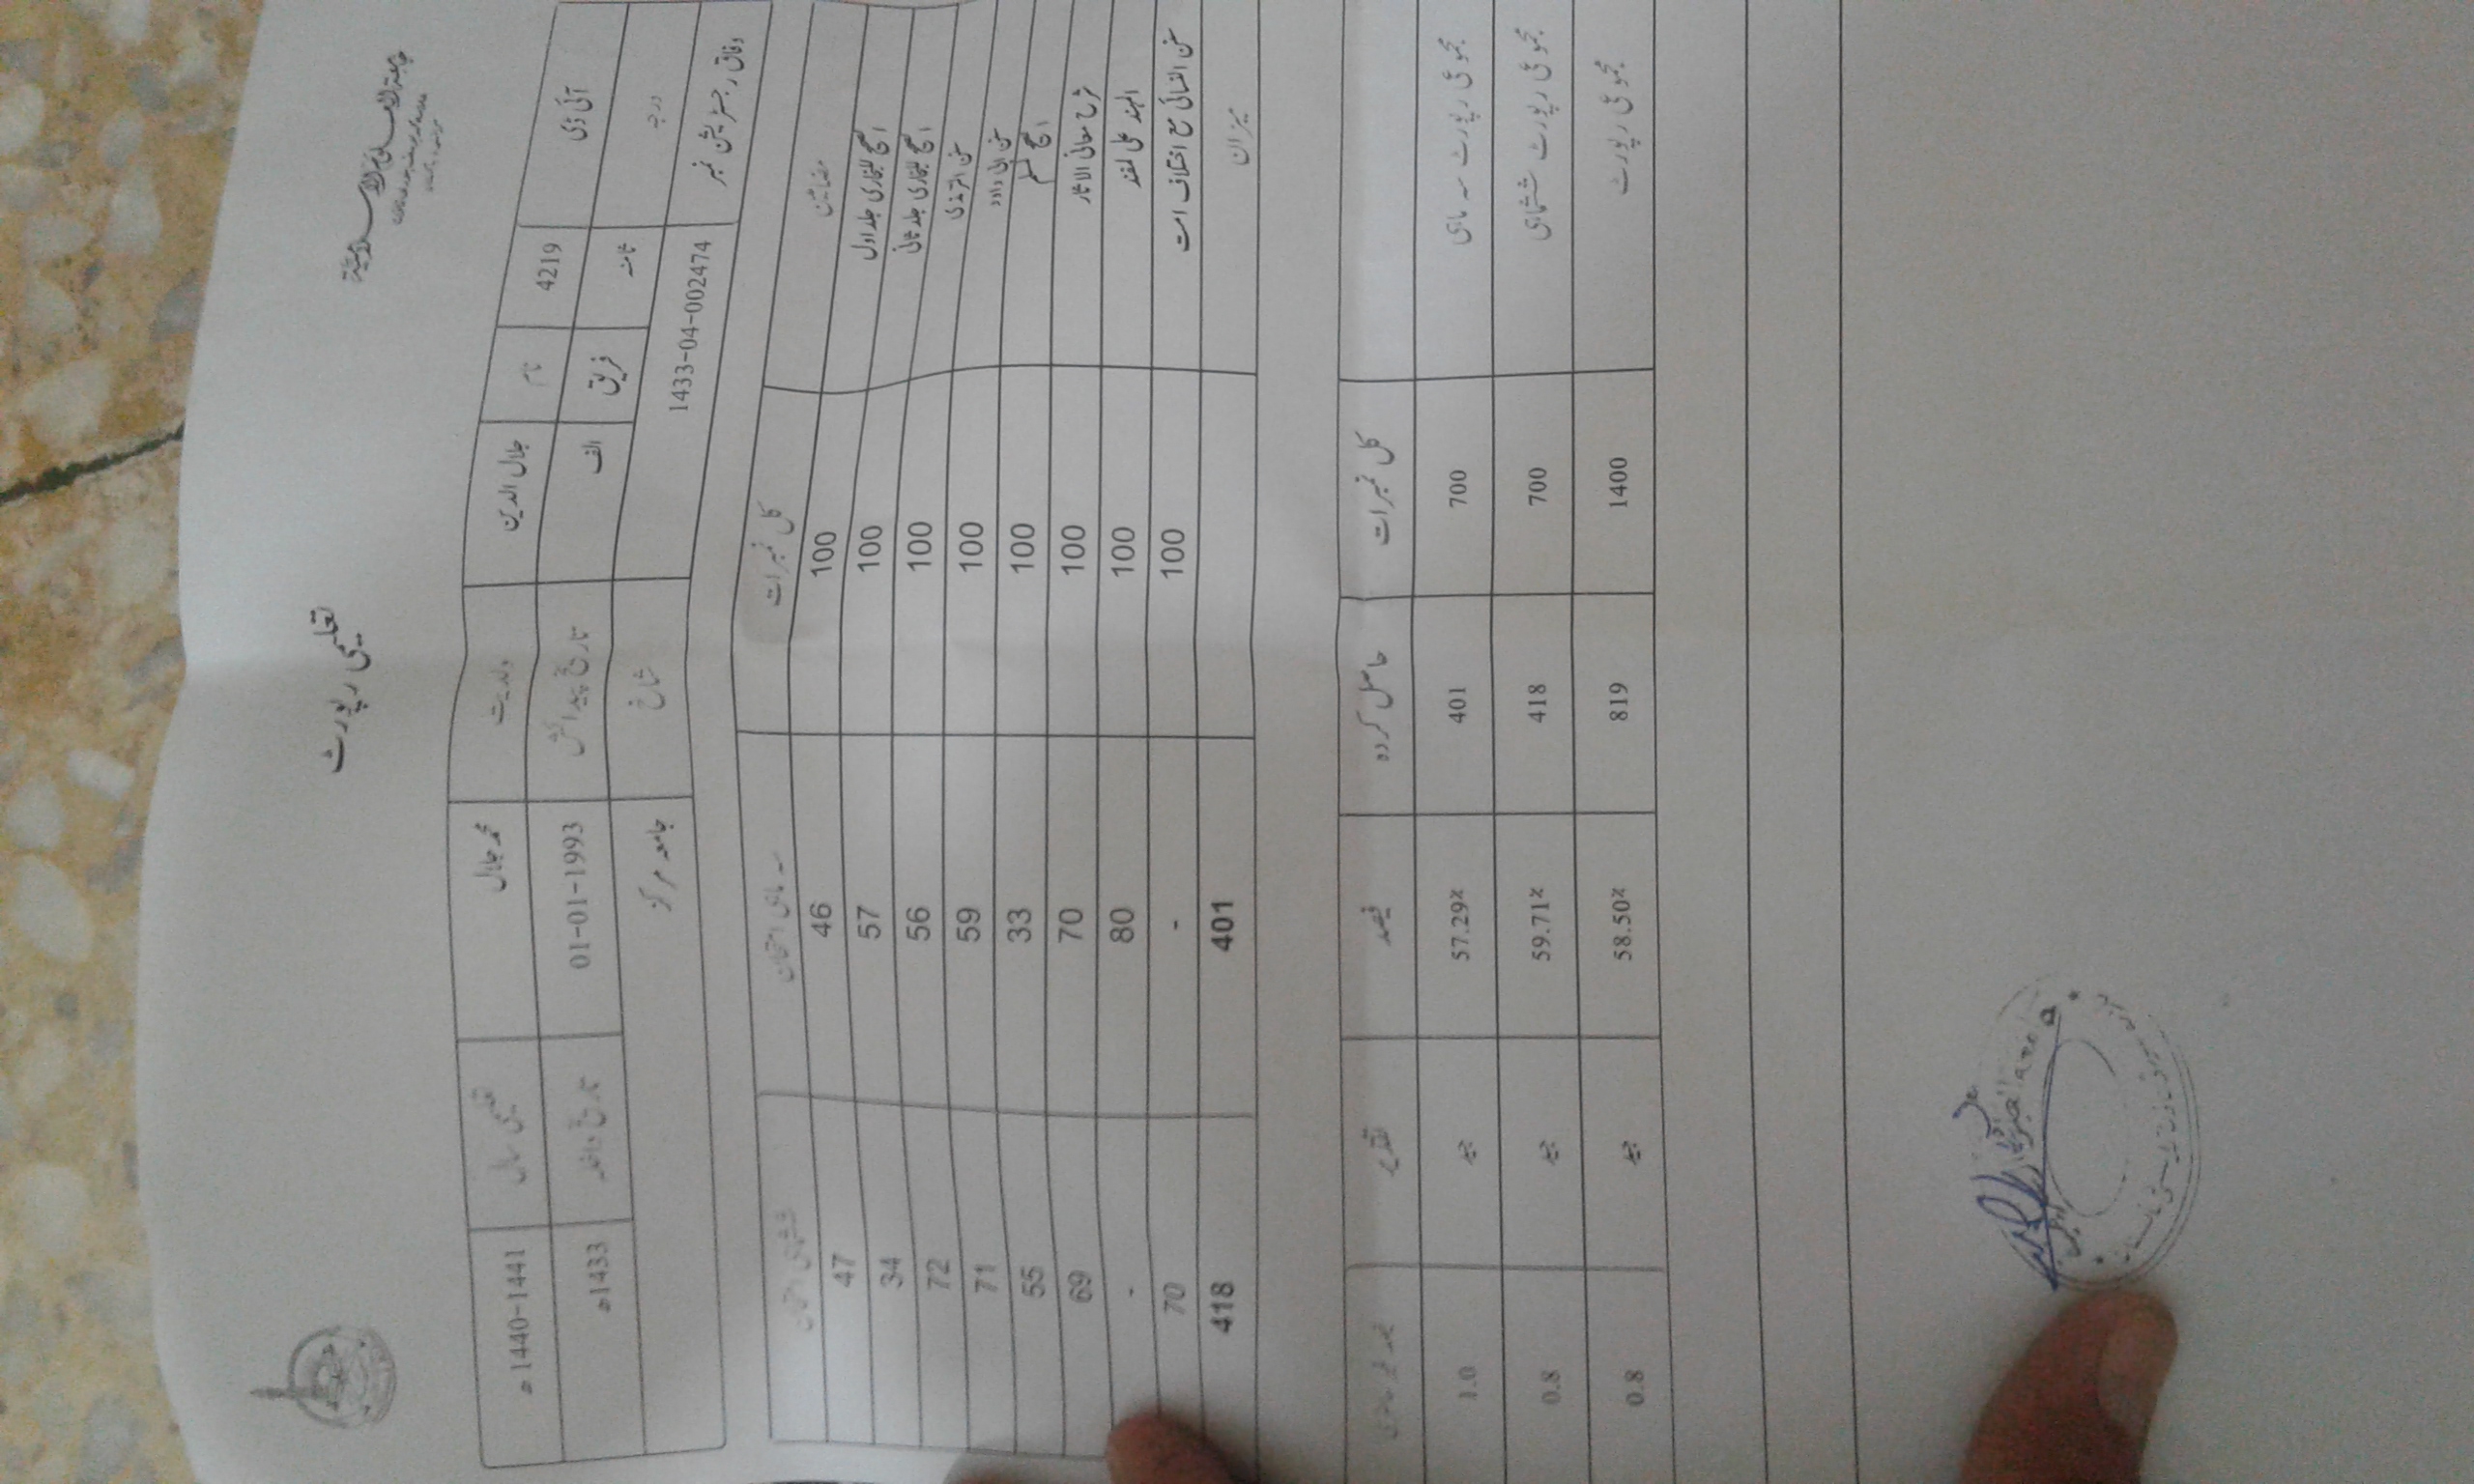 تعلیمی رپورٹ
آئی ڈی 4219 نام جلال الدین ولدیت محمد جلال تعلیمی سال 1440-1441ھ
درجہ ثامنہ فریق الف تاریخ پیدائش 01-01-1993 تاریخ داخلہ 1433ھ
وفاق رجسٹریشن نمبر 1433-04-002474 شاخ جامعہ مرکز
مضامین کل نمبرات سہ ماہی امتحان ششماہی امتحان
الصحیح للبخاری جلد اول 100 46 47
الصحیح للبخاری جلد ثانی 100 57 34
سنن الترمذی 100 56 72
سنن ابی داود 100 59 71
الصحیح لمسلم 100 33 55
شرح معانی الاثار 100 70 69
المہند علی المفند 100 80 -
سنن النسائی مع اختلاف امت 100 - 70
میزان 401 418
کل نمبرات حاصل کردہ فیصد تقدیر
مجموعی رپورٹ سہ ماہی 700 401 57.29% جید 1.0
مجموعی رپورٹ ششماہی 700 418 59.71% جید 0.8
مجموعی رپورٹ 1400 819 58.50% جید 0.8